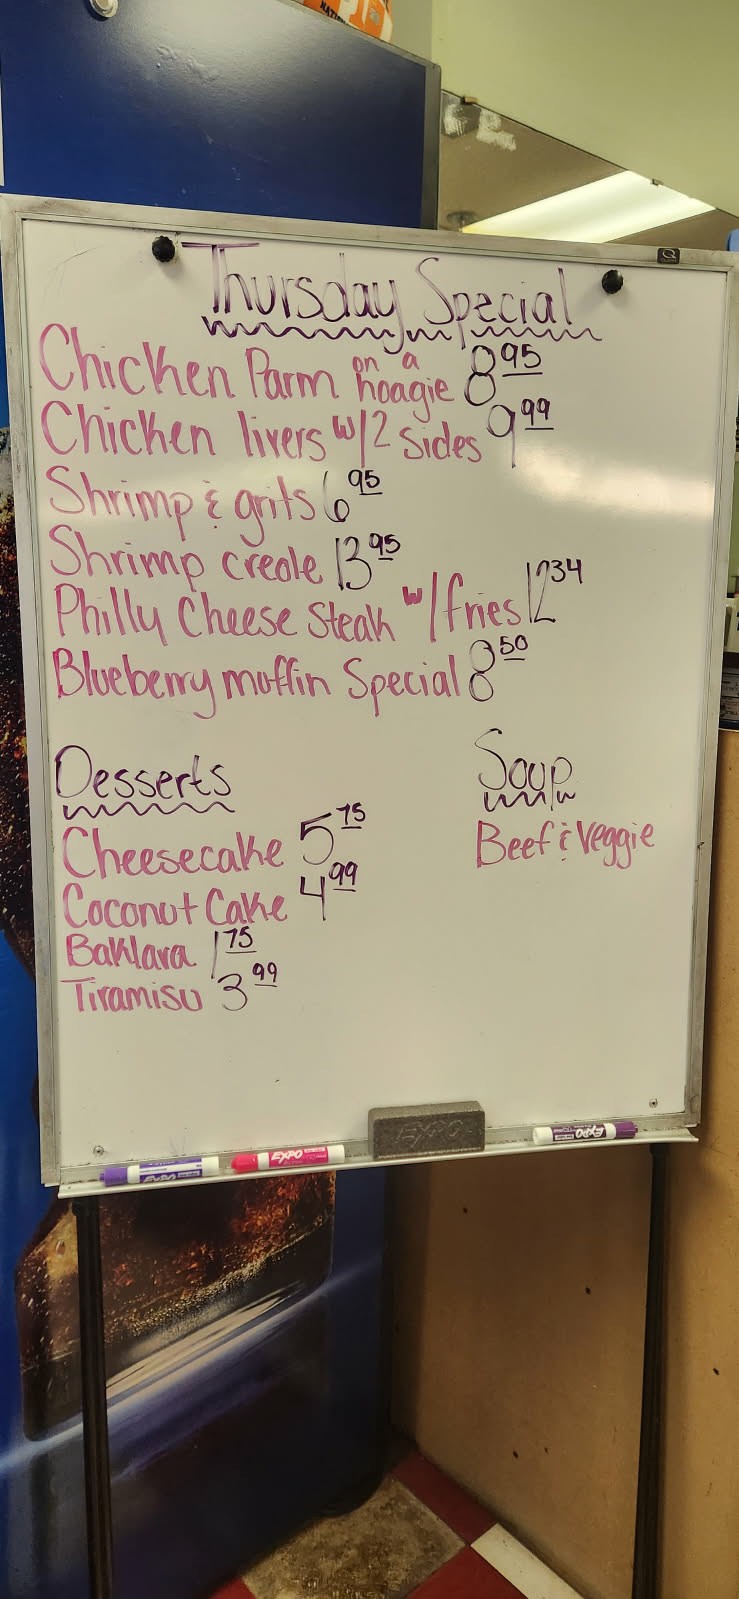 Thursday Special
Chicken Parm on a hoagie 8 95
Chicken livers w/2 sides 9 99
Shrimp & grits 6 95
Shrimp creole 13 95
Philly Cheese Steak w/fries 12 34
Blueberry muffin Special 8 50
Desserts
Cheesecake 5 75
Coconut Cake 4 99
Baklava 1 75
Tiramisu 3 99
Soup
Beef & Veggie
EXPO
EXPO
EXPO
EXPO